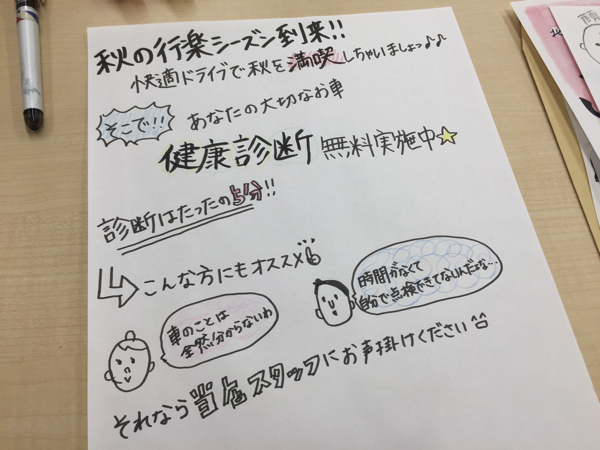 秋の行楽シーズン到来!!
快適ドライブで秋を満喫しちゃいましょっ♪♪
そこで!! あなたの大切なお車
健康診断 無料実施中☆
診断はたったの5分!!
こんな方にもオススメ
車のことは
全然分からないわ
時間がなくて
自分で点検できてないんだよな…
それなら当店スタッフにお声掛けください